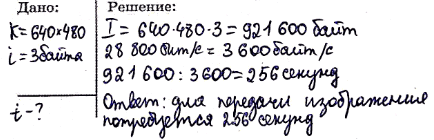 Дано:
K = 640×480
i = 3 байта
t - ?
Решение:
I = 640·480·3 = 921 600 байт
28 800 бит/с = 3 600 байт/с
921 600 : 3600 = 256 секунд
Ответ: для передачи изображения
потребуется 256 секунд